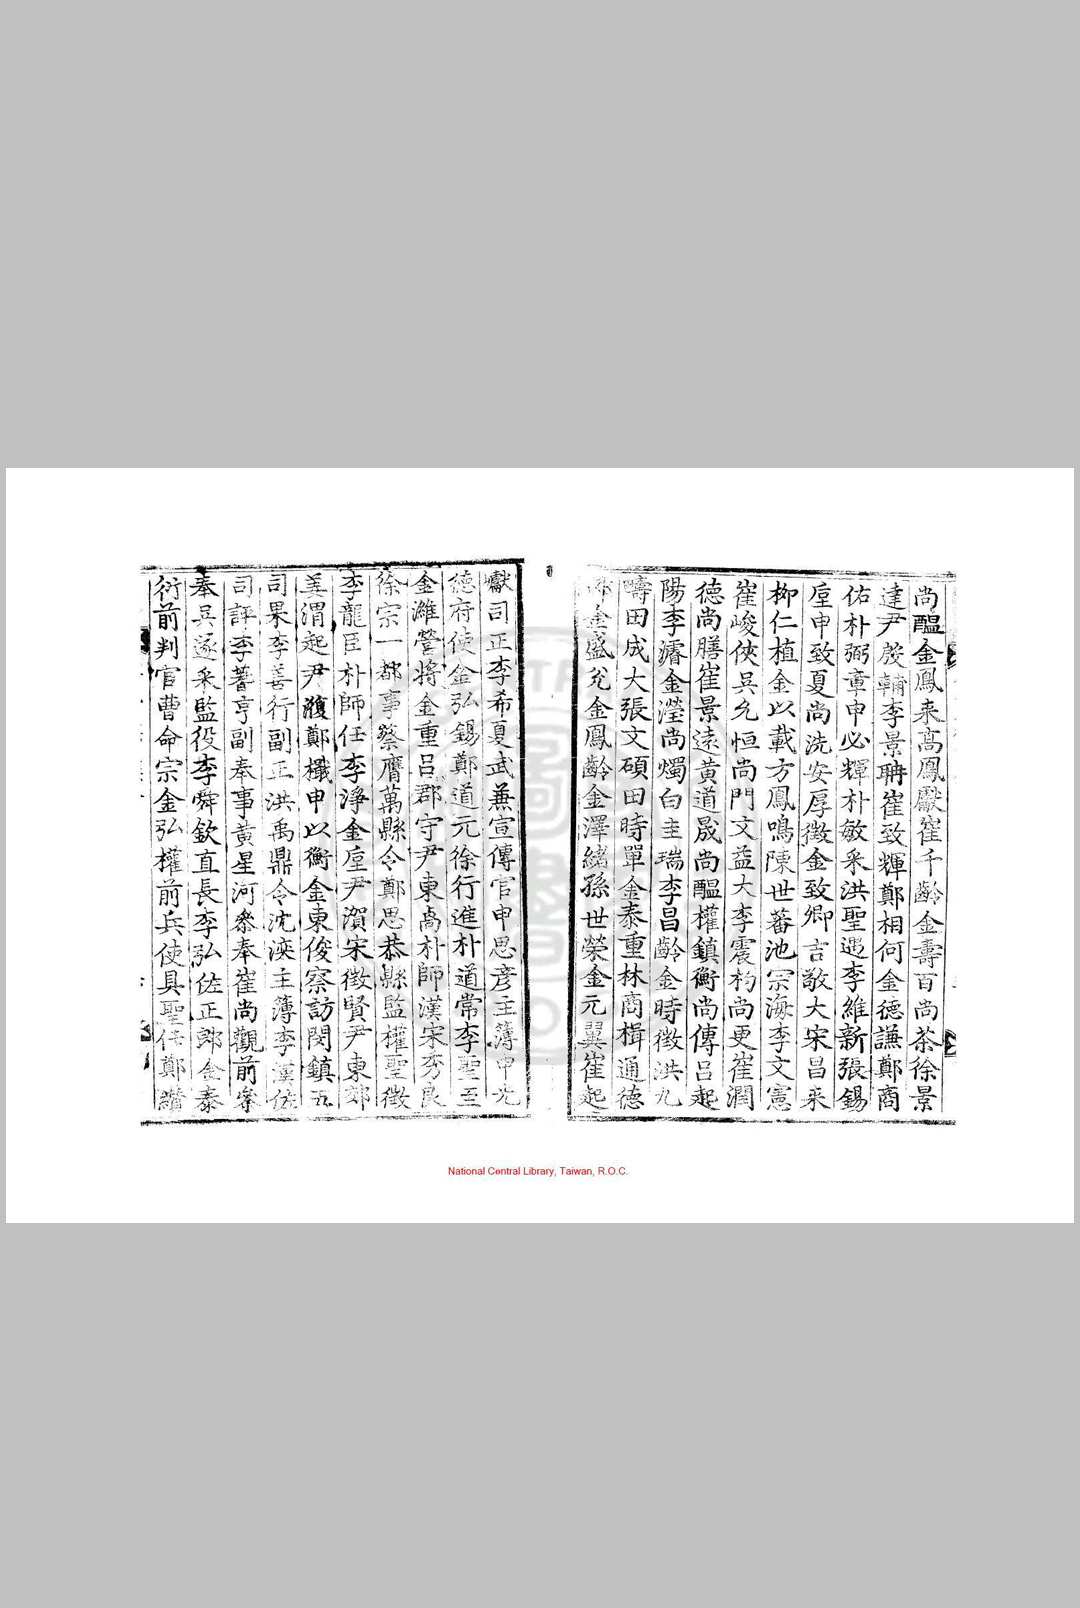 尚醞金鳳来高鳳獻崔千齡金壽百尚茶徐景
達尹殷輔李景聃崔致輝鄭相何金德謙鄭商
佑朴弼章申必輝朴敏采洪聖遇李維新張錫
垕申致夏尚洗安厚徵金致卿言敬大宋昌来
柳仁植金以載方鳳鳴陳世蕃池宗海李文憲
崔峻俠吳允恒尚門文益大李震杓尚更崔潤
德尚膳崔景遠黄道晟尚醞權鎮衡尚傳呂起
陽李濬金瀅尚燭白圭瑞李昌齡金時徵洪九
疇田成大張文碩田時單金泰重林商楫通德
郎金盛兊金鳳齡金澤緒孫世榮金元翼崔起
獻司正李希夏武兼宣傳官申思彦主簿申光
德府使金弘錫鄭道元徐行進朴道常李聖至
金濰營將金重呂郡守尹東卨朴師漢宋秀良
徐宗一都事蔡膺萬縣令鄭思恭縣監權聖徵
李龍臣朴師任李淨金垕尹濵宋徵賢尹東郊
姜渭起尹鄭檝申以衡金東俊察訪閔鎮五
司果李善行副正洪禹鼎令沈浹主簿李漢佐
司評李蓍亨副奉事黄星河叅奉崔尚觀前寧
奉吳遂采監役李舜欽直長李弘佐正郎金泰
衍前判官曹命宗金弘權前兵使具聖任鄭纘
National Central Library, Taiwan, R.O.C.